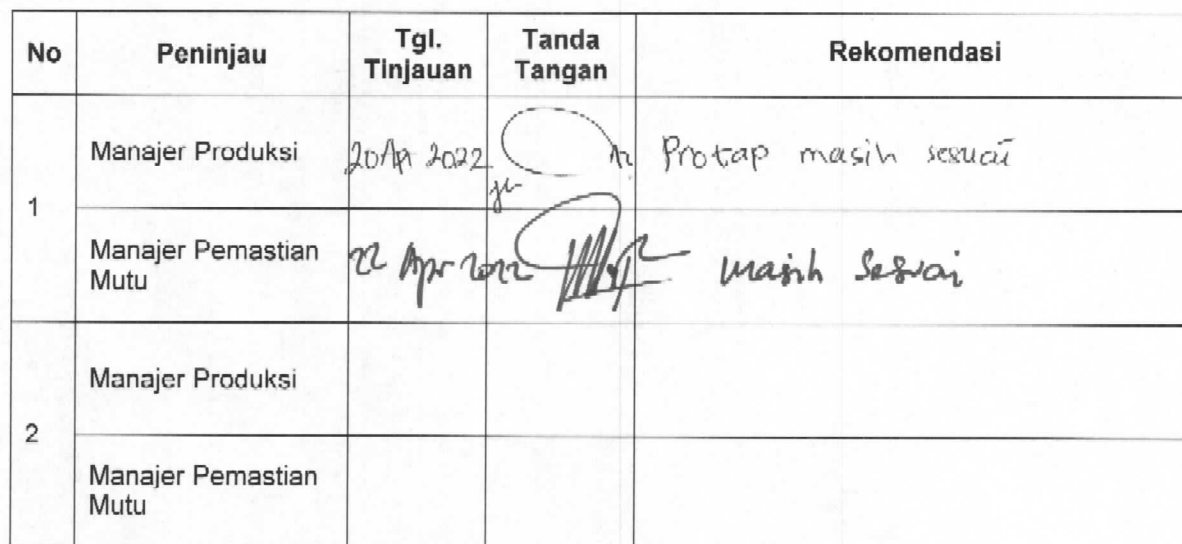 No Peninjau Tgl. Tinjauan Tanda Tangan Rekomendasi
1
Manajer Produksi 20 Apr 2022 Protap masih sesuai
Manajer Pemastian Mutu 22 Apr 2022 masih sesuai
2
Manajer Produksi
Manajer Pemastian Mutu